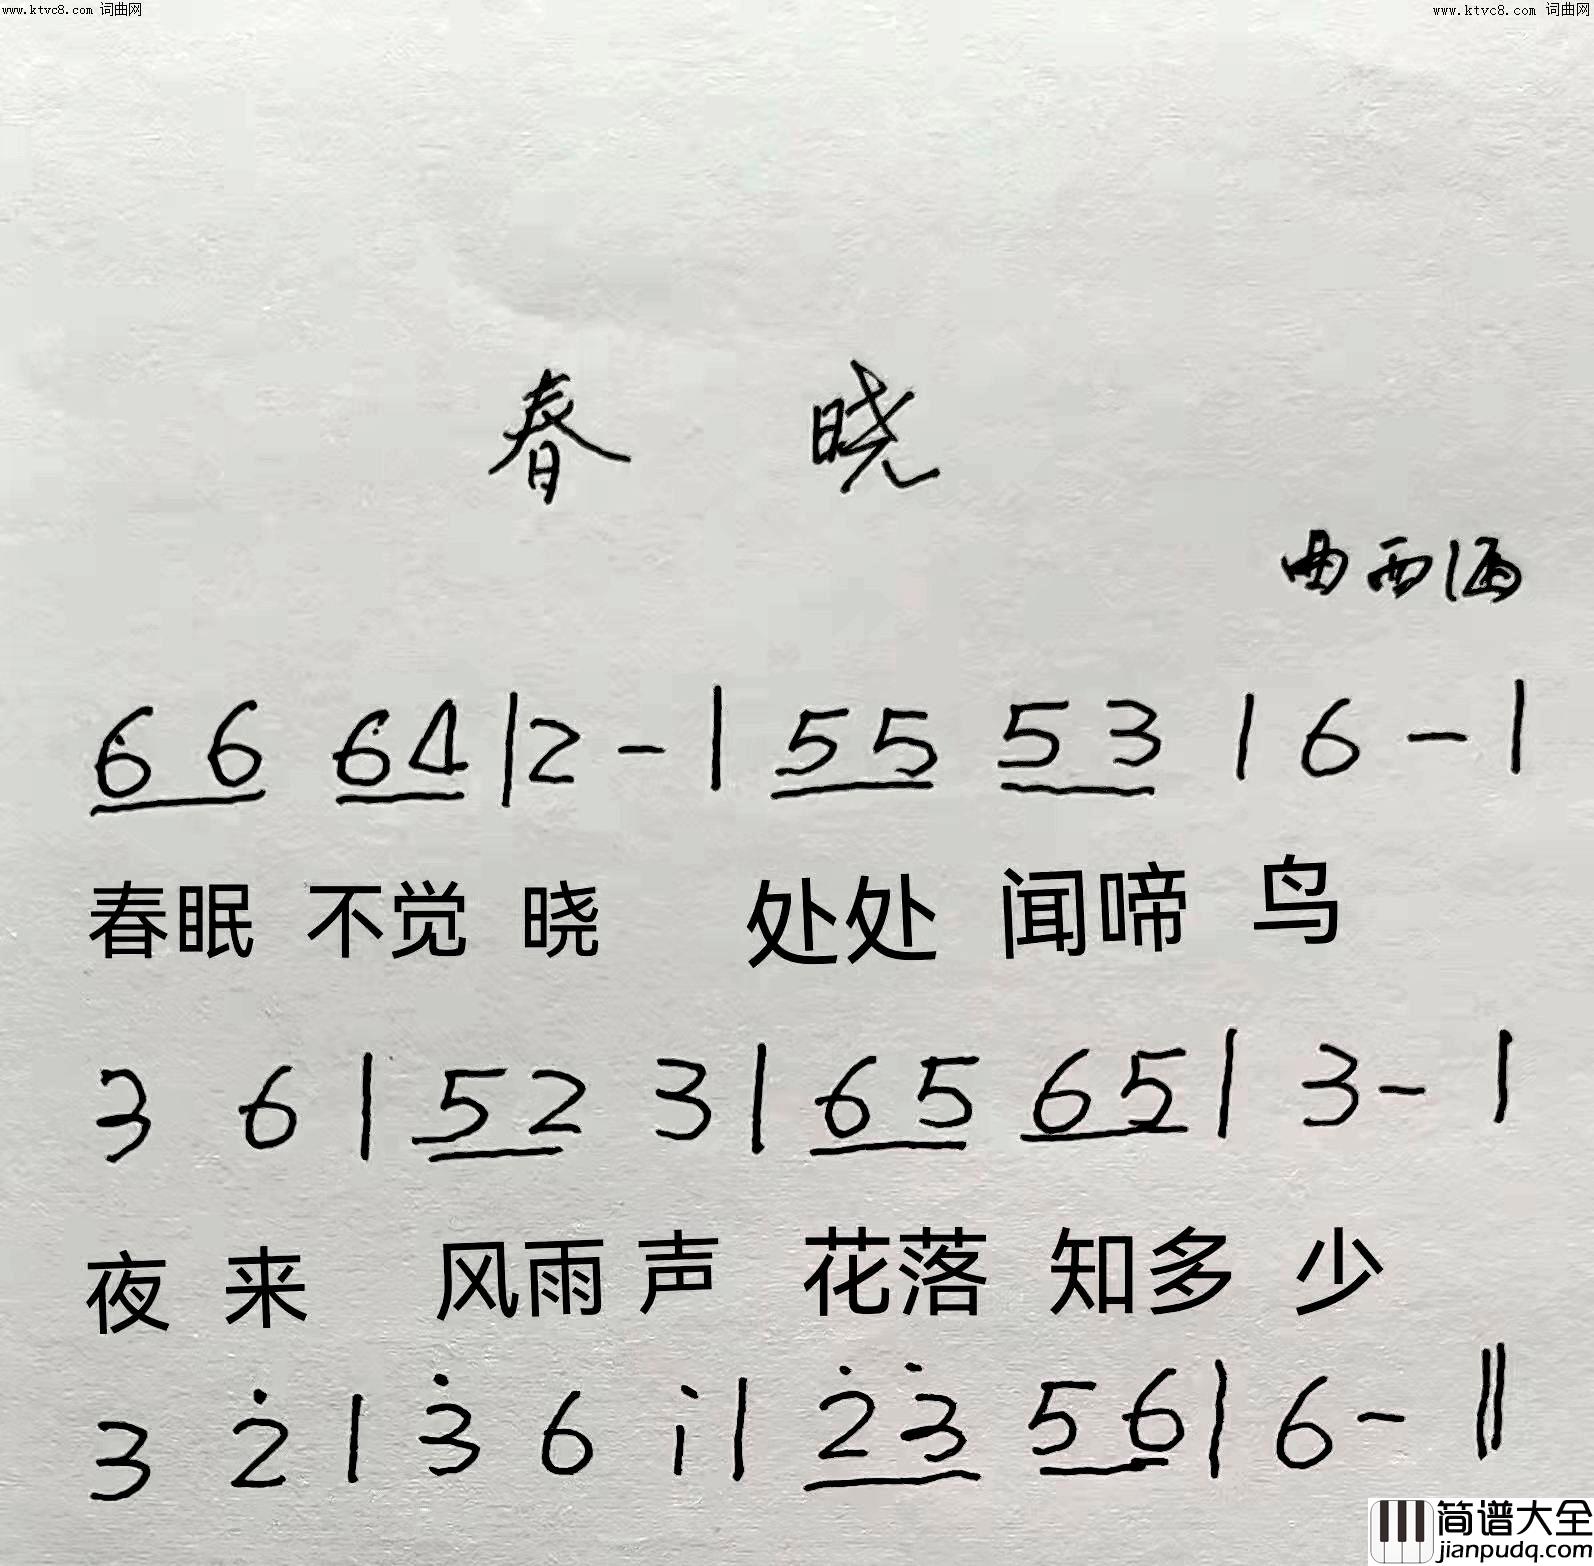 www.ktvc8.com 词曲网 www.ktvc8.com 词曲网
春 晓
曲西洒
6 6 6 4 | 2 - | 5 5 5 3 | 6 - |
春眠 不觉 晓 处处 闻啼 鸟
3 6 | 5 2 3 | 6 5 6 5 | 3 - |
夜 来 风雨 声 花落 知多 少
3 2̇ | 3̇ 6 i | 2̇ 3̇ 5 6 | 6 - ‖
简谱大全
jianpudq.com